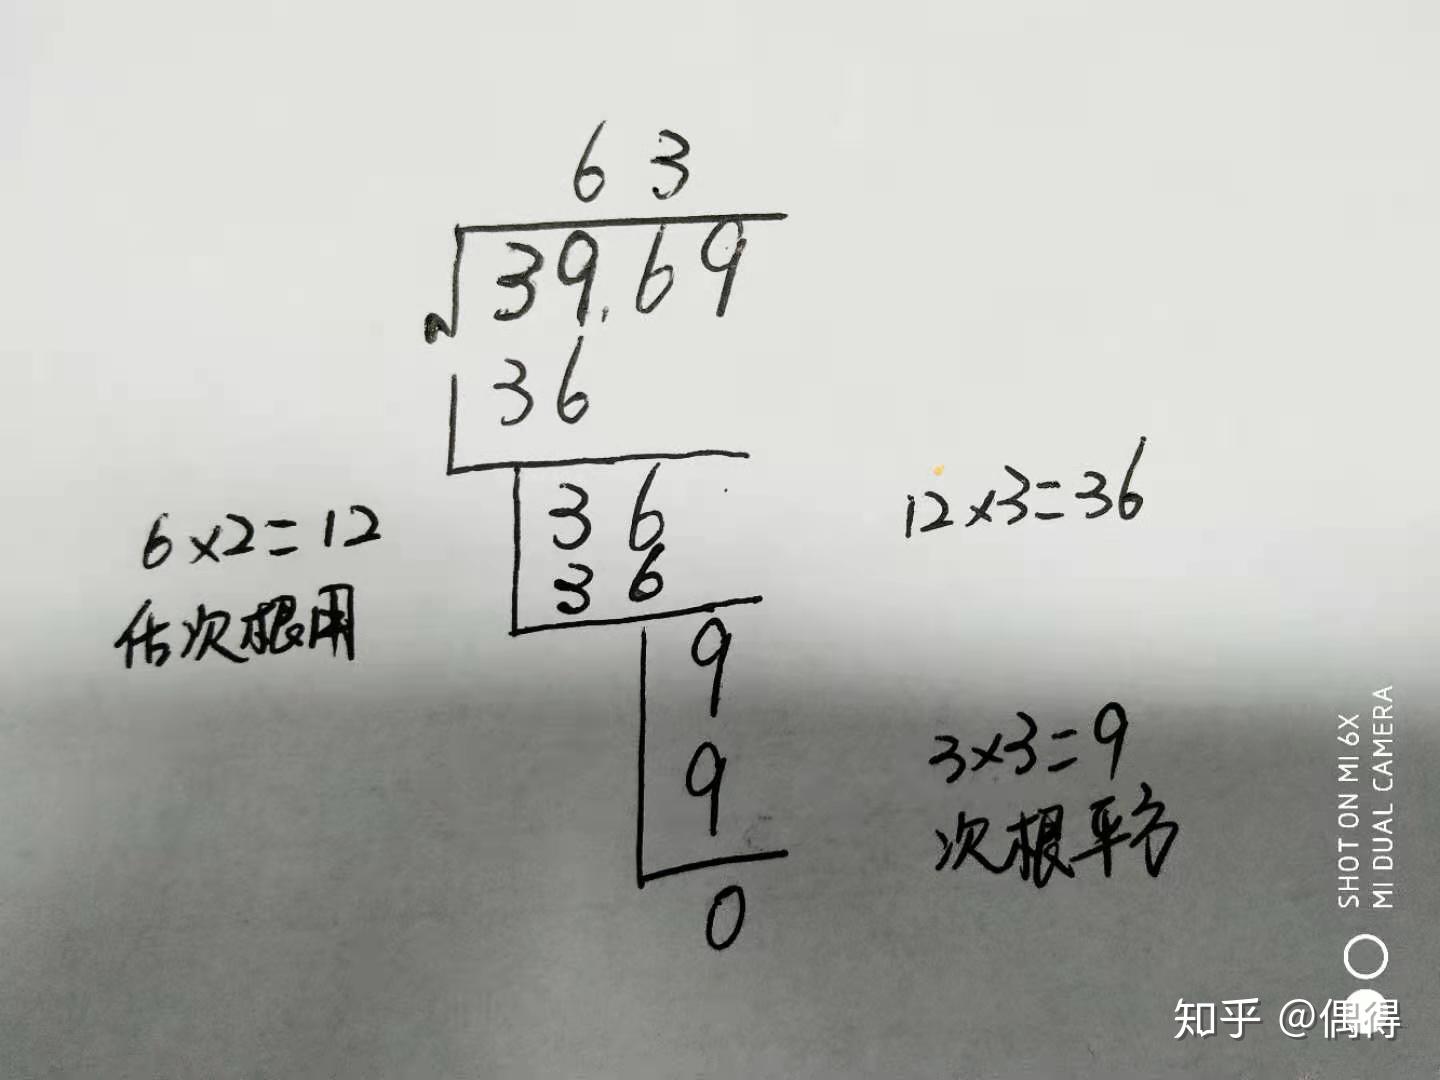 6 3
39.69
36
36
6×2=12
12×3=36
36
估次根用
9
3×3=9
9
次根平方
0
SHOT ON MI 6X
MI DUAL CAMERA
知乎 @偶得